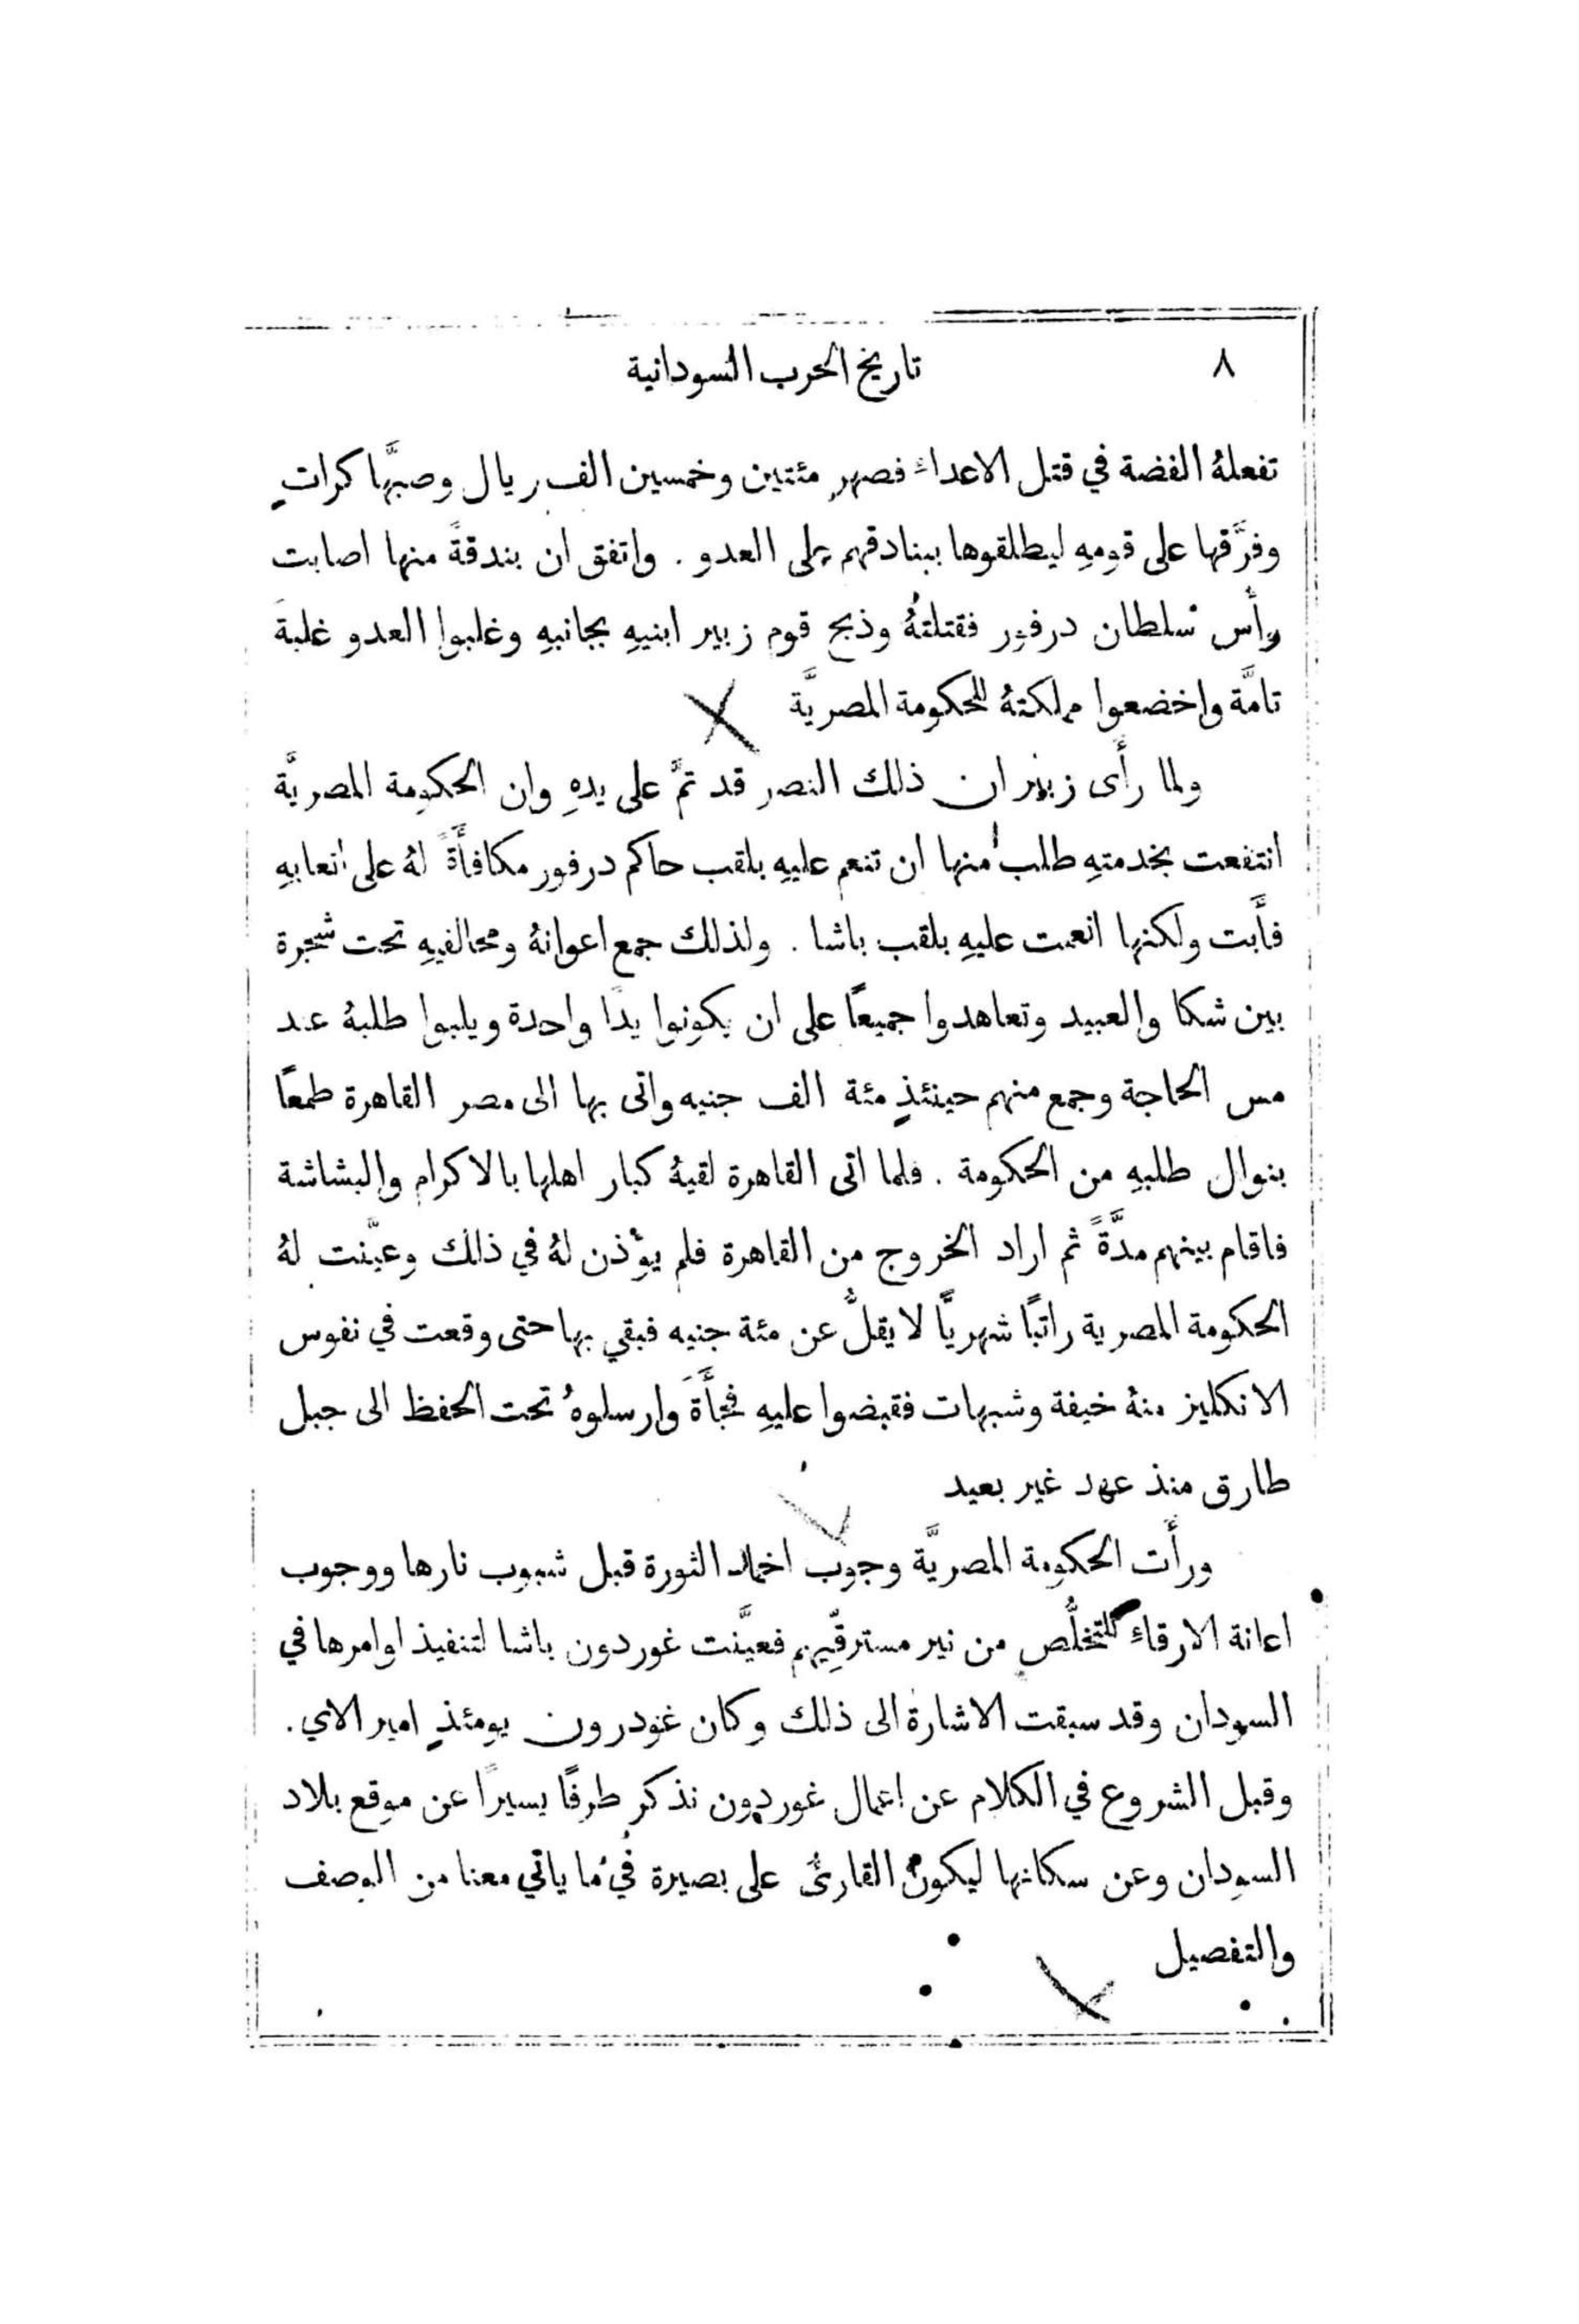 ٨ تاريخ الحرب السودانية
تفعلهُ الفضة في قتل الاعداء فصهر مئتين وخمسين الف ريال وصبَّها كراتٍ
وفرَّقها على قومهِ ليطلقوها ببنادقهم على العدو . واتفق ان بندقةً منها اصابت
رأس سلطان درفور فقتلتهُ وذبح قوم زبير ابنيهِ بجانبهِ وغلبوا العدو غلبةً
تامَّة واخضعوا مملكتهُ للحكومة المصريَّة
ولما رأَى زبير ان ذلك النصر قد تمَّ على يدهِ وان الحكومة المصريَّة
انتفعت بخدمتهِ طلب منها ان تنعم عليهِ بلقب حاكم درفور مكافأَةً لهُ على اتعابهِ
فأَبت ولكنها انعمت عليهِ بلقب باشا . ولذلك جمع اعوانهُ ومحالفيهِ تحت شجرة
بين شكا والعبيد وتعاهدوا جميعًا على ان يكونوا يدًا واحدة ويلبوا طلبهُ عند
مس الحاجة وجمع منهم حينئذٍ مئة الف جنيه واتى بها الى مصر القاهرة طمعًا
بنوال طلبهِ من الحكومة . فلما اتى القاهرة لقيهُ كبار اهلها بالاكرام والبشاشة
فاقام بينهم مدَّةً ثم اراد الخروج من القاهرة فلم يوْذن لهُ في ذلك وعيَّنت لهُ
الحكومة المصرية راتبًا شهريًّا لا يقلُّ عن مئة جنيه فبقي بها حتى وقعت في نفوس
الانكليز منهُ خيفة وشبهات فقبضوا عليهِ فجأَةً وارسلوهُ تحت الحفظ الى جبل
طارق منذ عهد غير بعيد
ورأَت الحكومة المصريَّة وجوب اخماد الثورة قبل شبوب نارها ووجوب
اعانة الارقاءِ للتخلُّص من نير مسترقِّيهم فعيَّنت غوردون باشا لتنفيذ اوامرها في
السودان وقد سبقت الاشارة الى ذلك وكان غودرون يومئذٍ امير الاي .
وقبل الشروع في الكلام عن اعمال غوردون نذكر طرفًا يسيرًا عن موقع بلاد
السودان وعن سكانها ليكون القارئُ على بصيرة في ما ياتي معنا من الوصف
والتفصيل